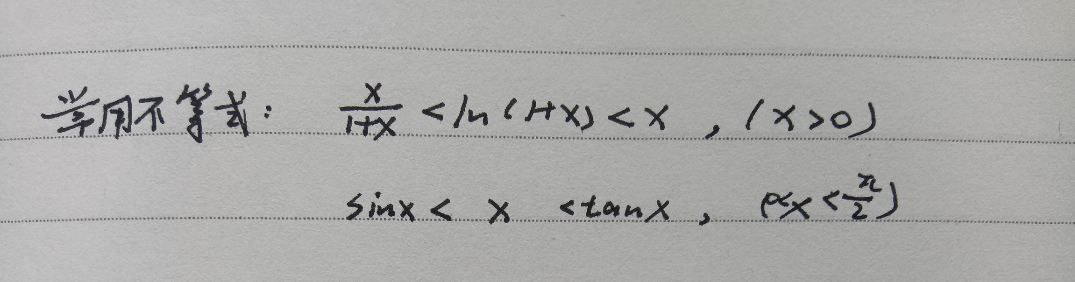 常用不等式: x/(1+x) < ln(1+x) < x , (x>0)
sinx < x < tanx , (0<x<π/2)